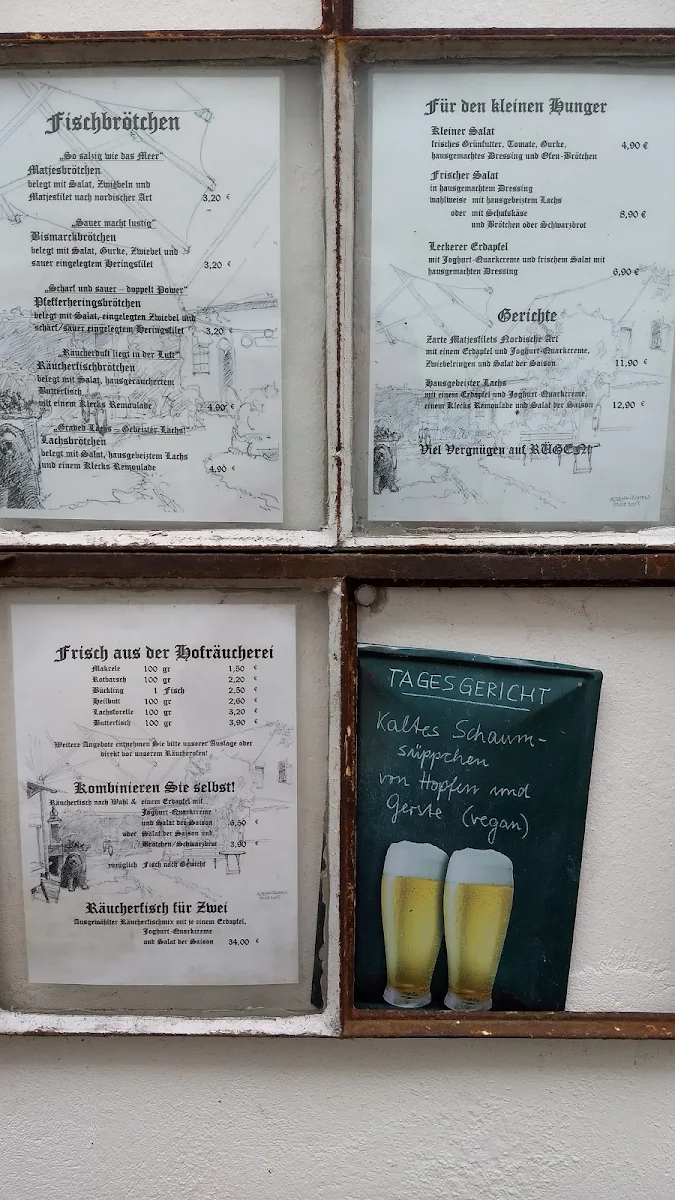 Fischbrötchen
„So salzig wie das Meer"
Matjesbrötchen
belegt mit Salat, Zwiebeln und
Matjesfilet nach nordischer Art 3,20 €
„Sauer macht lustig"
Bismarckbrötchen
belegt mit Salat, Gurke, Zwiebel und
sauer eingelegtem Heringsfilet 3,20 €
„Scharf und sauer – doppelt Power"
Pfefferheringsbrötchen
belegt mit Salat, eingelegten Zwiebel und
scharf/sauer eingelegtem Heringsfilet 3,20 €
„Räucherduft liegt in der Luft"
Räucherfischbrötchen
belegt mit Salat, hausgeräuchertem
Butterfisch
mit einem Klecks Remoulade 4,90 €
„Graved Lachs – Gebeizter Lachs!"
Lachsbrötchen
belegt mit Salat, hausgebeiztem Lachs
und einem Klecks Remoulade 4,90 €
Für den kleinen Hunger
Kleiner Salat
frisches Grünfutter, Tomate, Gurke, 4,90 €
hausgemachtes Dressing und Ofen-Brötchen
Frischer Salat
in hausgemachtem Dressing
wahlweise mit hausgebeiztem Lachs
oder mit Schafskäse 8,90 €
und Brötchen oder Schwarzbrot
Leckerer Erdapfel
mit Joghurt-Quarkcreme und frischem Salat mit
hausgemachten Dressing 6,90 €
Gerichte
Zarte Matjesfilets Nordische Art
mit einem Erdapfel und Joghurt-Quarkcreme,
Zwiebelringen und Salat der Saison 11,90 €
Hausgebeizter Lachs
mit einem Erdapfel und Joghurt-Quarkcreme,
einem Klecks Remoulade und Salat der Saison 12,90 €
Viel Vergnügen auf RÜGEN
Frisch aus der Hofräucherei
Makrele 100 gr 1,50 €
Rotbarsch 100 gr 2,20 €
Bückling 1 Fisch 2,50 €
Heilbutt 100 gr 2,60 €
Lachsforelle 100 gr 3,20 €
Butterfisch 100 gr 3,90 €
Weitere Angebote entnehmen Sie bitte unserer Auslage oder
direkt vor unserem Räucherofen!
Kombinieren Sie selbst!
Räucherfisch nach Wahl & einem Erdapfel mit
Joghurt-Quarkcreme
und Salat der Saison 6,50 €
oder Salat der Saison und
Brötchen/Schwarzbrot 3,90 €
zuzüglich Fisch nach Gewicht
Räucherfisch für Zwei
Ausgewählter Räucherfischmix mit je einem Erdapfel,
Joghurt-Quarkcreme
und Salat der Saison 34,00 €
TAGESGERICHT
Kaltes Schaum-
süppchen
von Hopfen und
Gerste (vegan)